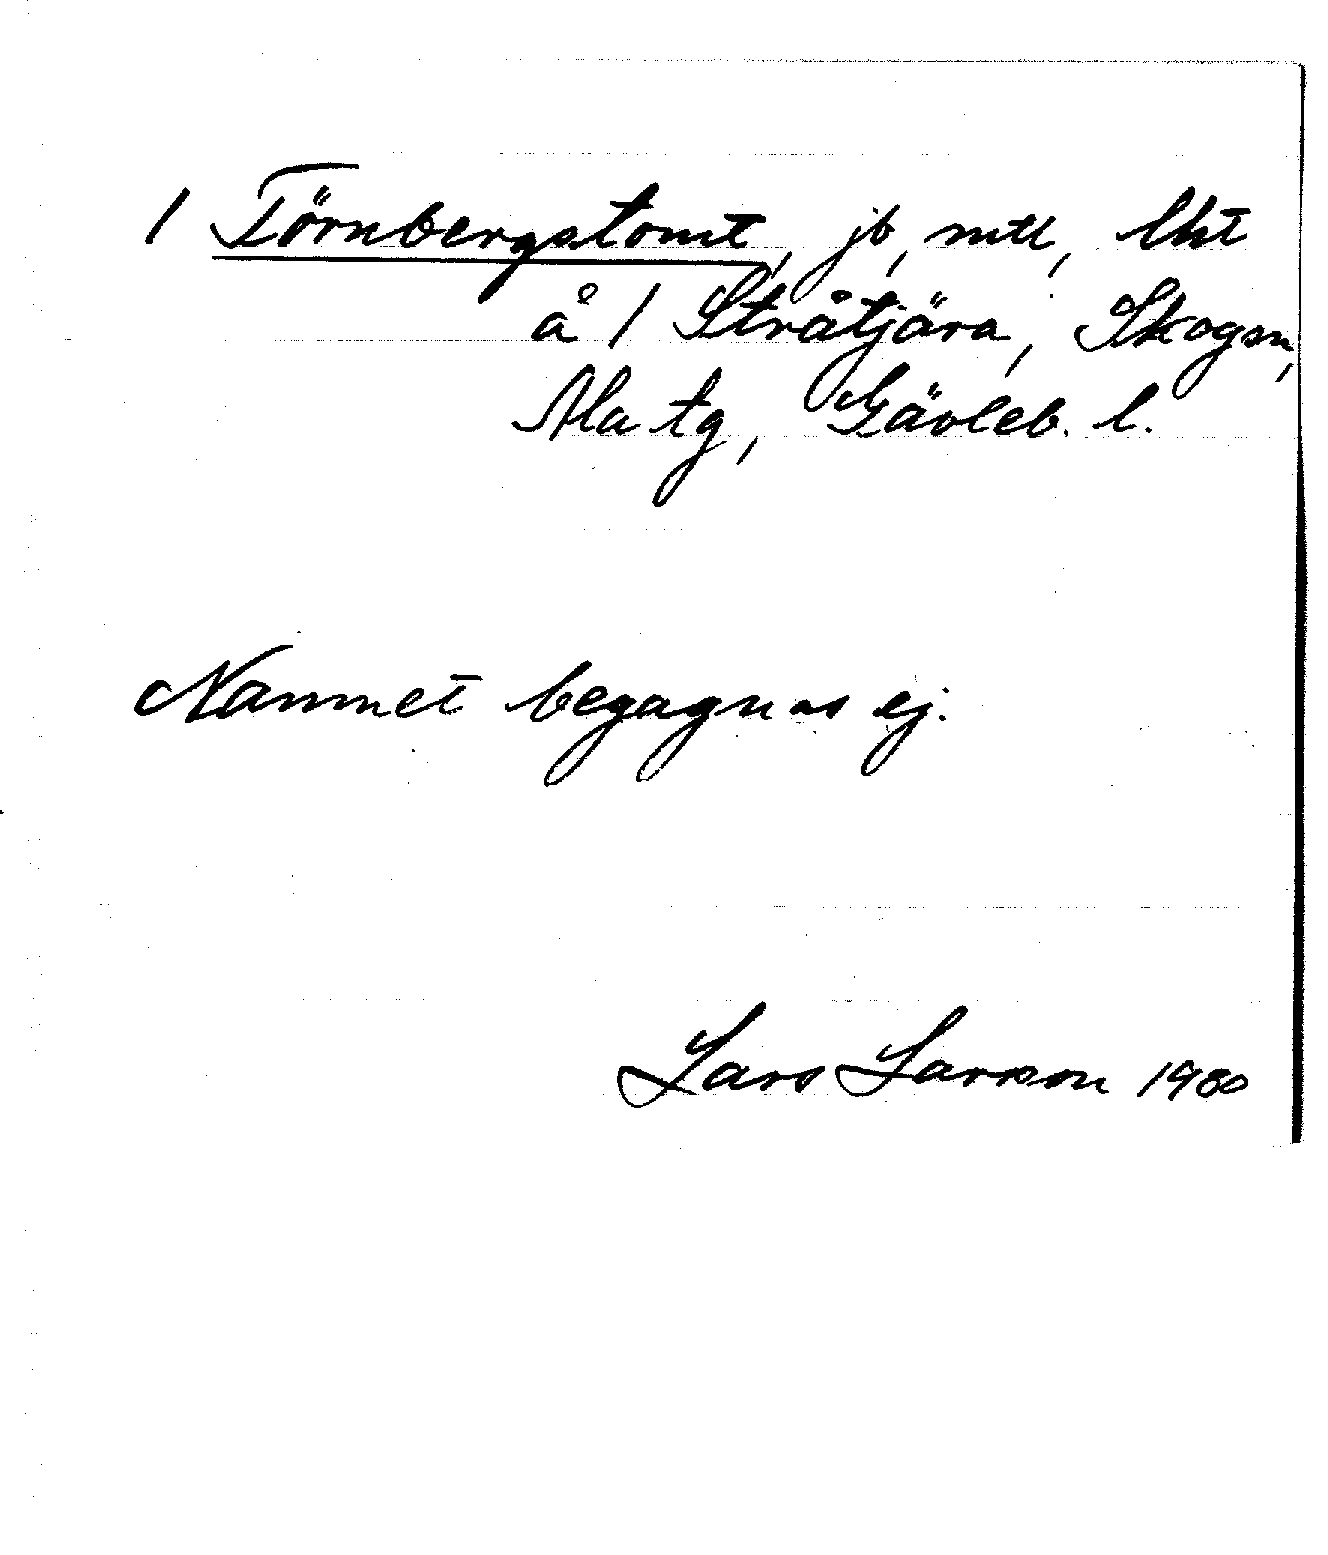 / Törnbergstomt, jb, mtl, lht
å / Stråtjära, Skogsn,
Ala tg, Gävleb. l.
Namnet begagnas ej.
Lars Larson 1980